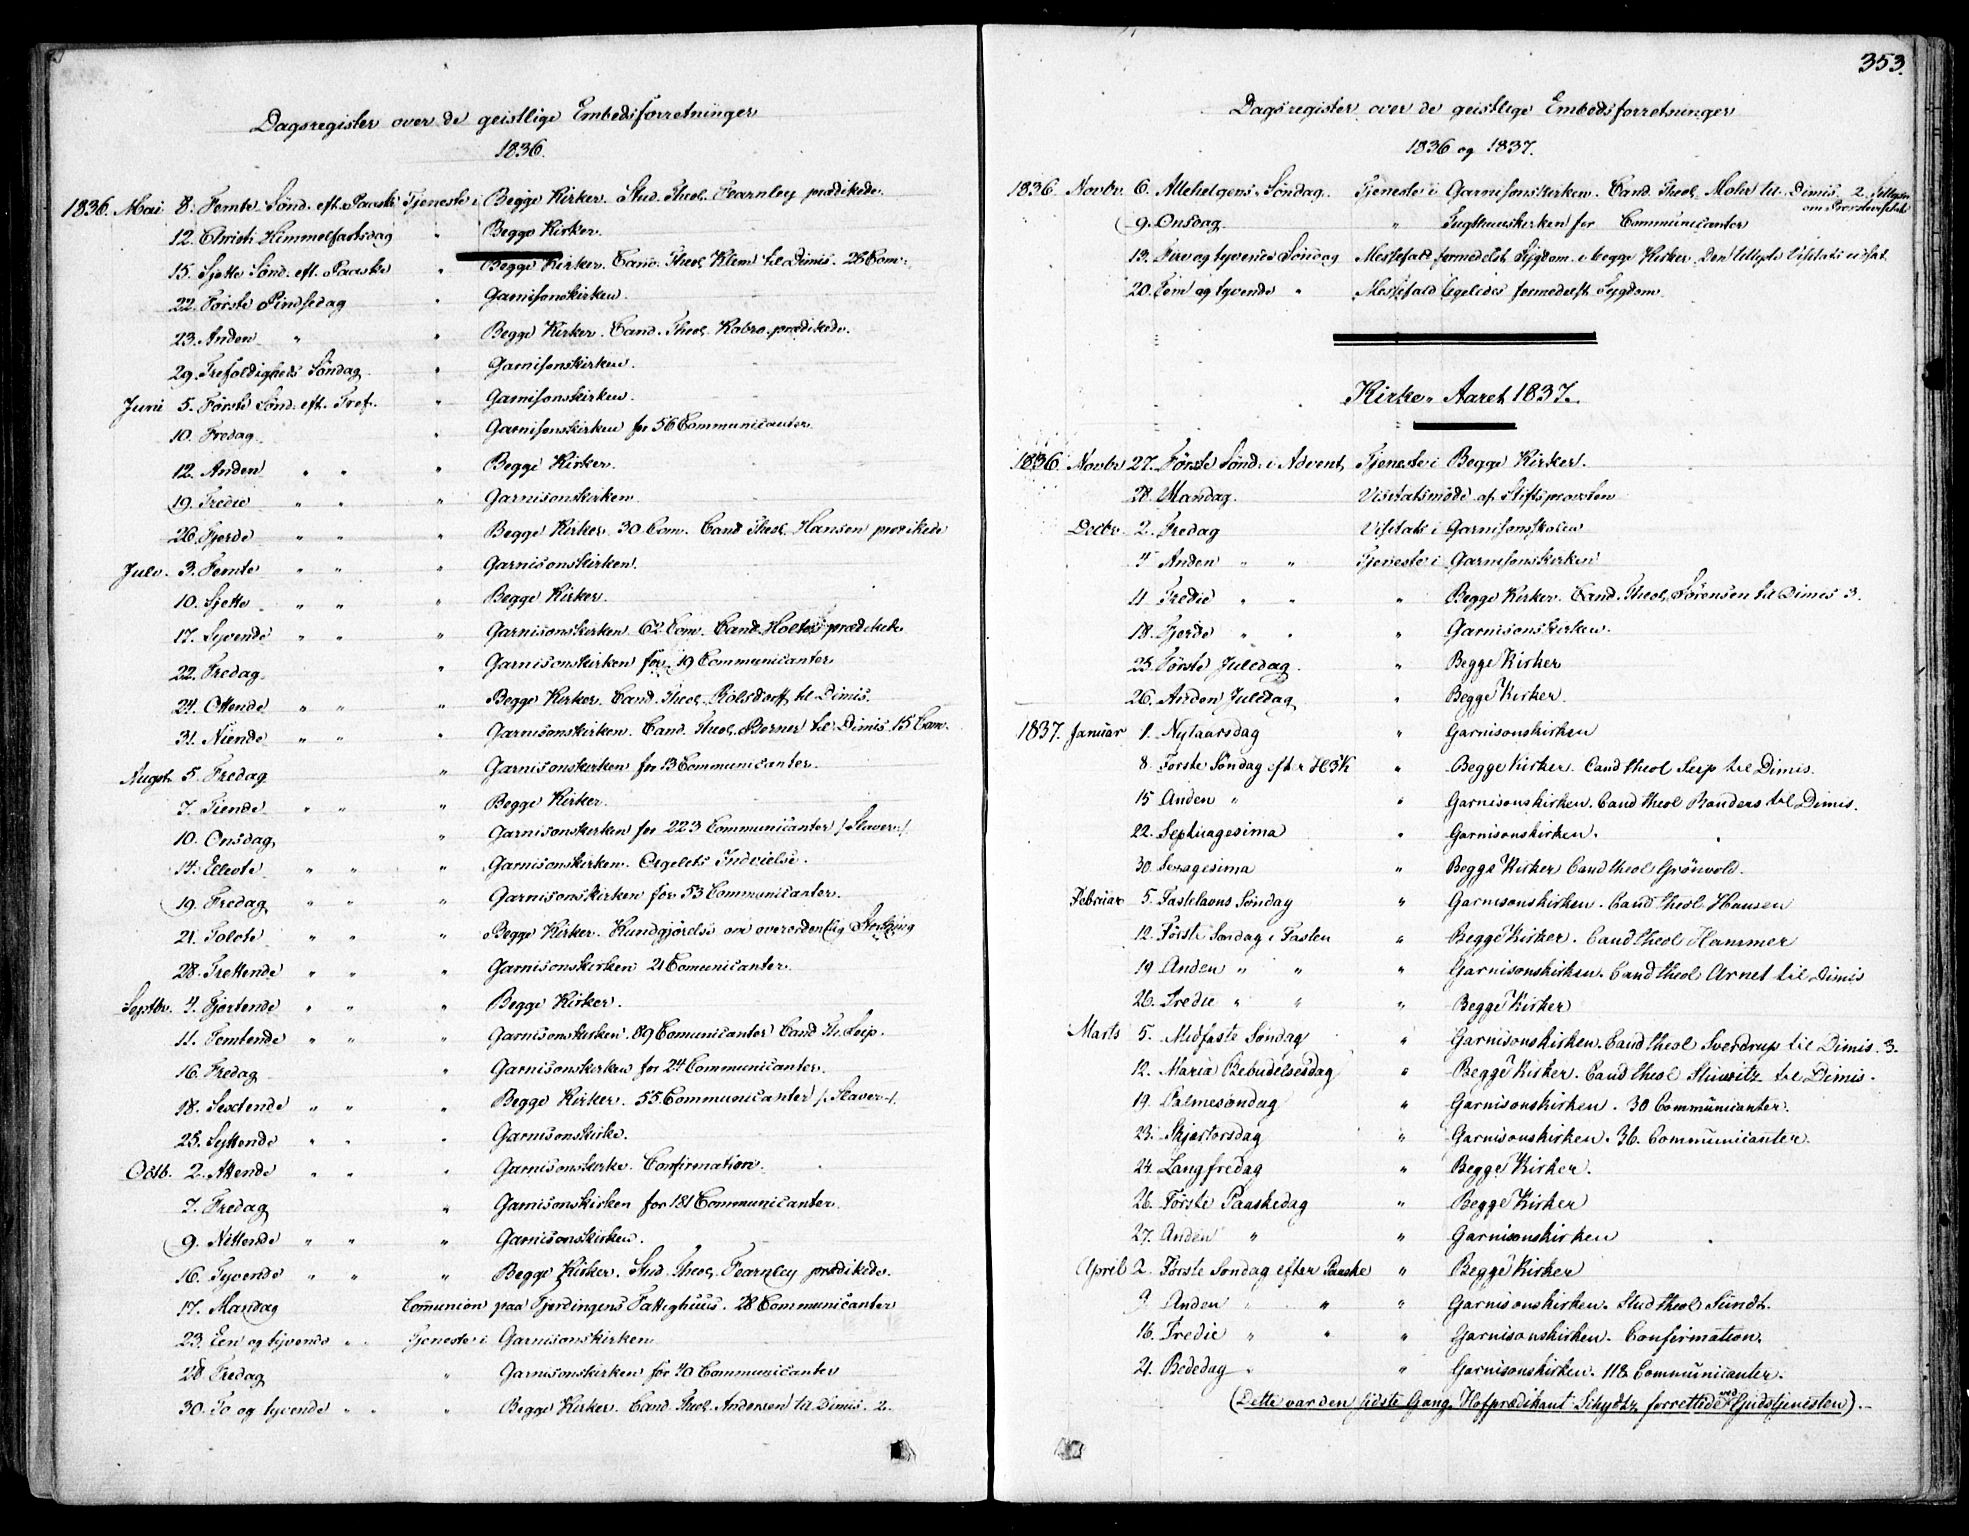 Dagsregister over de geistlige Embedsforretninger
1836.
1836. Mai 8. Femte Sønd. eft. Paaske Tjeneste i Begge Kirker. Stud. Theol. Fearnley prædikede.
12. Christi Himmelfartsdag " Begge Kirker.
15. Sjette Sønd. eft. Paaske " Begge Kirker. Cand. Theol. Klem til Dimis. 28 Com.
22. Første Pindsedag " Garnisonskirken.
23. Anden " " Begge Kirker. Cand. Theol. Rabro prædikede.
29. Trefoldigheds Søndag " Garnisonskirken.
Juni 5. Første Sønd. eft. Tref. " Garnisonskirken.
10. Fredag " Garnisonskirken for 56 Communicanter
12. Anden " " " Begge Kirker.
19. Tredie " " " Garnisonskirken
26. Fjerde " " " Begge Kirker. 30 Com. Cand. Theol. Hansen prædikede
Juli. 3. Femte " " " Garnisonskirken.
10. Sjette " " " Begge Kirker.
17. Syvende " " " Garnisonskirken 62 Com. Cand. Holte prædikede
22. Fredag " Garnisonskirken for 19 Communicanter
24. Ottende " " " Begge Kirker. Cand. Theol. Rolsdorff til Dimis.
31. Niende " " " Garnisonskirken. Cand. Theol. Borner til Dimis 15 Com.
Augst. 5. Fredag " Garnisonskirken for 13 Communicanter.
7. Tiende " " " Begge Kirker.
10. Onsdag " Garnisonskirken for 223 Communicanter /: Slaver :/
14. Ellevte " " " Garnisonskirken. Orgelets Indvielse.
19. Fredag " " " Garnisonskirken for 53 Communicanter.
21. Tolvte " " " Begge Kirker. Kundgjørelse om overordentlig Storthing
28. Trettende " " " Garnisonskirken 21 Comunicanter.
Septbr. 4. Fjortende " " " Begge Kirker.
11. Femtende " " " Garnisonskirken. 89 Comunicanter Cand. Th. Seip.
16. Fredag " Garnisonskirken for 24 Communicanter.
18. Sextende " " " Begge Kirker. 55 Communicanter /: Slaver :/
25. Syttende " " " Garnisonskirke.
Octb. 2. Attende " " " Garnisonskirke. Confirmation.
7. Fredag " Garnisonskirken for 181 Communicanter.
9. Nittende " " " Garnisonskirken.
16. Tyvende " " " Begge Kirker. Stud. Theol. Fearnley prædikede.
17. Mandag Communion paa Fjerdingens Fattighuus. 28 Communicanter
23. Een og tyvende " " Tjeneste i Garnisonskirken
28 Fredag " Garnisonskirken for 40 Communicanter
30. To og tyvende " " " Begge Kirker. Cand. Theol. Andersen til Dimis. 2.
353.
Dagsregister over de geistlige Embedsforretninger
1836 og 1837.
1836 Novbr. 6. Allehelgens Søndag. Tjeneste i Garnisonskirken. Cand. Theol. Mohr til Dimis. 2. Tillysn.
om Provstevisitats
9. Onsdag " Tugthuuskirken for Communicanter
13. Tre og tyvende Søndag Messefald formedelst Sygdom i begge Kirker. Den tillyste Visitats udsat.
20. Fem og tyvende " Messefald ligeledes formedelst Sygdom.
Kirke-Aaret 1837.
1836 Novbr 27. Første Sønd. i Advent Tjeneste i Begge Kirker.
28. Mandag. Visitatsmøde af Stiftsprovsten
Decbr. 2. Fredag Visitats i Garnisonsskolen
4 Anden " " Tjeneste i Garnisonskirken
11 Tredie " " " Begge Kirker. Cand. Theol. Sørensen til Dimis 3.
18. Fjerde " " " Garnisonskirken.
25. Første Juledag. " Begge Kirker
26. Anden Juledag " Begge Kirker.
1837. Januar 1. Nytaarsdag " Garnisonskirken
8. Første Søndag efter H3K " Begge Kirker. Cand theol Seip til Dimis.
15 Anden " " Garnisonskirken. Cand theol Randers til Dimis.
22. Septuagesima " Garnisonskirken.
30. Sexagesima " Begge Kirker Cand theol Grönvold.
Februar 5. Fastelavns Søndag " Garnisonskirken. Cand theol Hansen
12. Første Søndag i Fasten " Begge Kirker. Cand theol Hammer
19 Anden " " " Garnisonskirken. Cand theol Arnet til Dimis
26. Tredie " " " Begge Kirker
Marts 5. Midfaste Søndag " Garnisonskirken. Cand theol Sverdrup til Dimis. 3.
12. Maria Bebudelsesdag " Begge Kirker. Cand theol Stuwitz til Dimis.
19. Palmesøndag " Garnisonskirken. 30 Communicanter.
23. Skjærtorsdag " Garnisonskirken. 36. Communicanter.
24. Langfredag " Begge Kirker.
26. Første Paaskedag " Begge Kirker
27. Anden " " Garnisonskirken
April 2. Første Søndag efter Paaske " Begge Kirker
9. Anden " " " Garnisonskirken. Stud theol Sundt.
16. Tredie " " " Garnisonskirken. Confirmation.
21. Bededag " Garnisonskirken. 118 Communicanter.
(Dette var den sidste Gang Hofprædikant Schydtz forrettede ved Gudstjenesten).